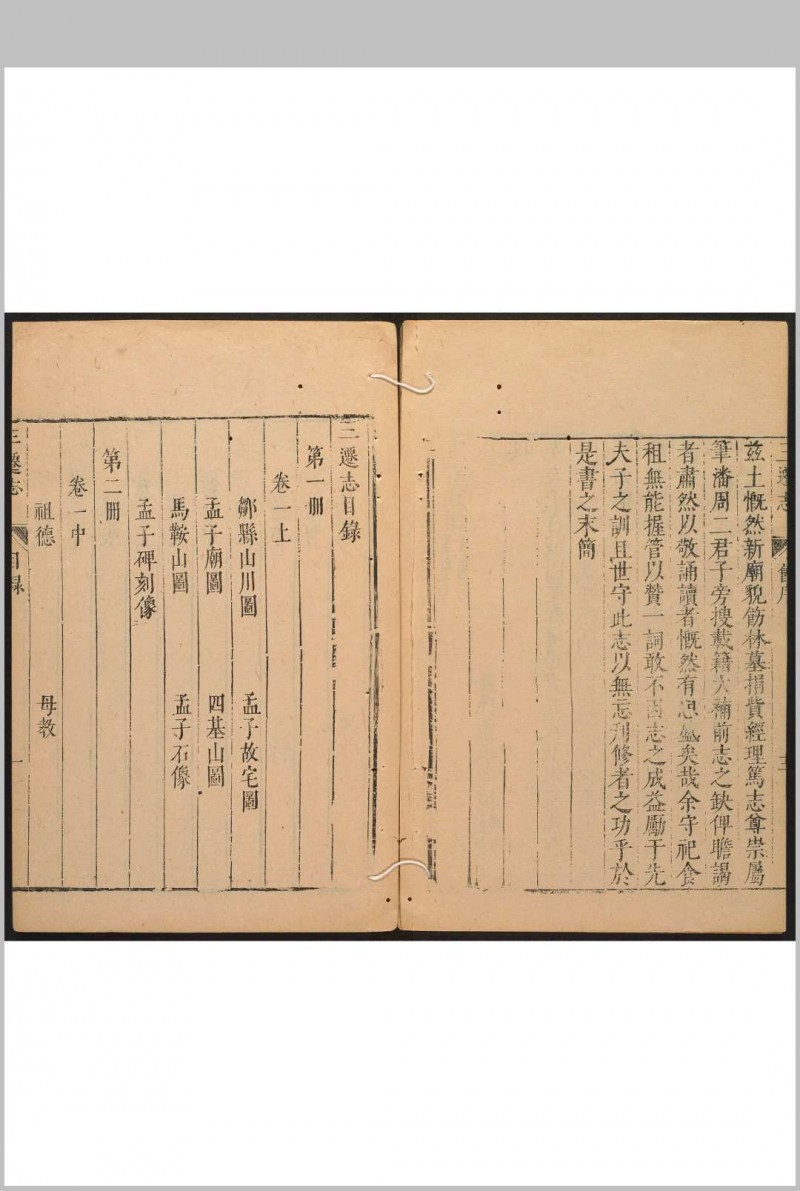 三遷志 舊序
茲土慨然新廟貌飭林墓捐貲經理篤志尊崇屬
筆潘周二君子旁搜載籍大補前志之缺俾瞻謁
者肅然以敬誦讀者慨然有思盛矣哉余守祀食
祖無能握管以贊一詞敢不因志之成益勵于先
夫子之訓且世守此志以無忘刋修者之功乎於
是書之末簡
三遷志目錄
第一册
卷一上
鄒縣山川圖 孟子故宅圖
孟子廟圖 四基山圖
馬鞍山圖 孟子石像
孟子碑刻像
第二册
卷一中
祖德 母教
三遷志 目錄 一